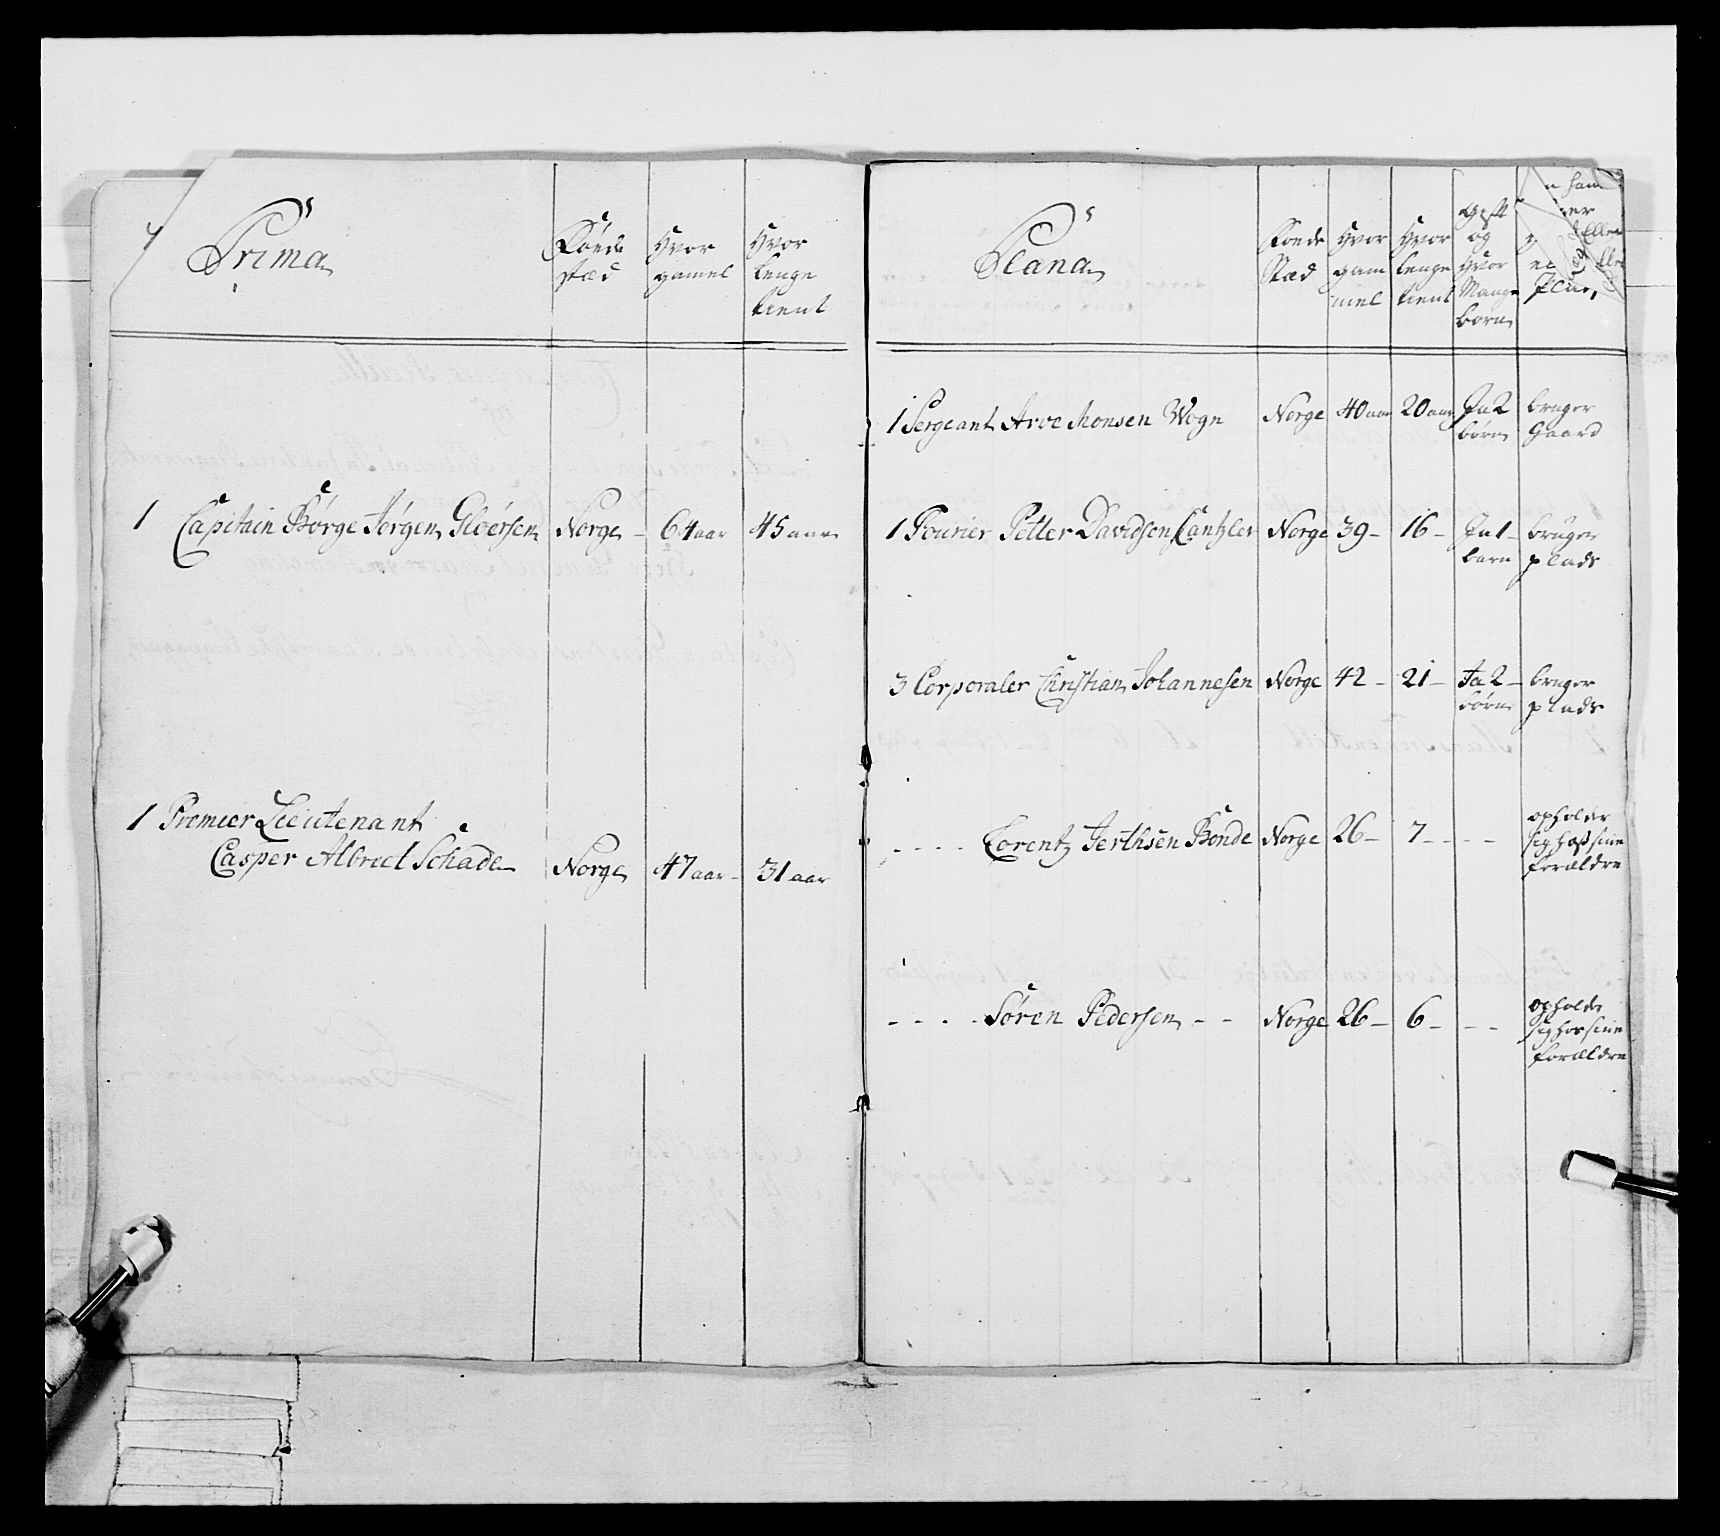 Prima
Föede
stæd
Hvor
gamel
Hvor
lenge
tient
1 Capitain Børge Jørgen Gloersen Norge 64 aar 45 aar
1 Premier Lieutenant
Casper Albrect Schade Norge 47 aar 31 aar
Plana
Föede
Stæd
Hvor
gam
mel
Hvor
lenge
tient
Gift
og
Hvor
Mange
börn
Eller
1 Sergeant Arve Monsen Wogn Norge 40 aar 20 aar Ja 2 bruger
börn Gaard
1 Fourier Petter Davidson Cantzler Norge 39 16 Ja 1 bruger
barn plads
3 Corporaler Christian Johannesen Norge 42 21 Ja 2 bruger
börn plads
Lorentz Jerthsen Bonde Norge 26 7 opholder
sig hoss sine
forældre
Sören Pedersen Norge 26 6 opholder
sig hos sine
forældre